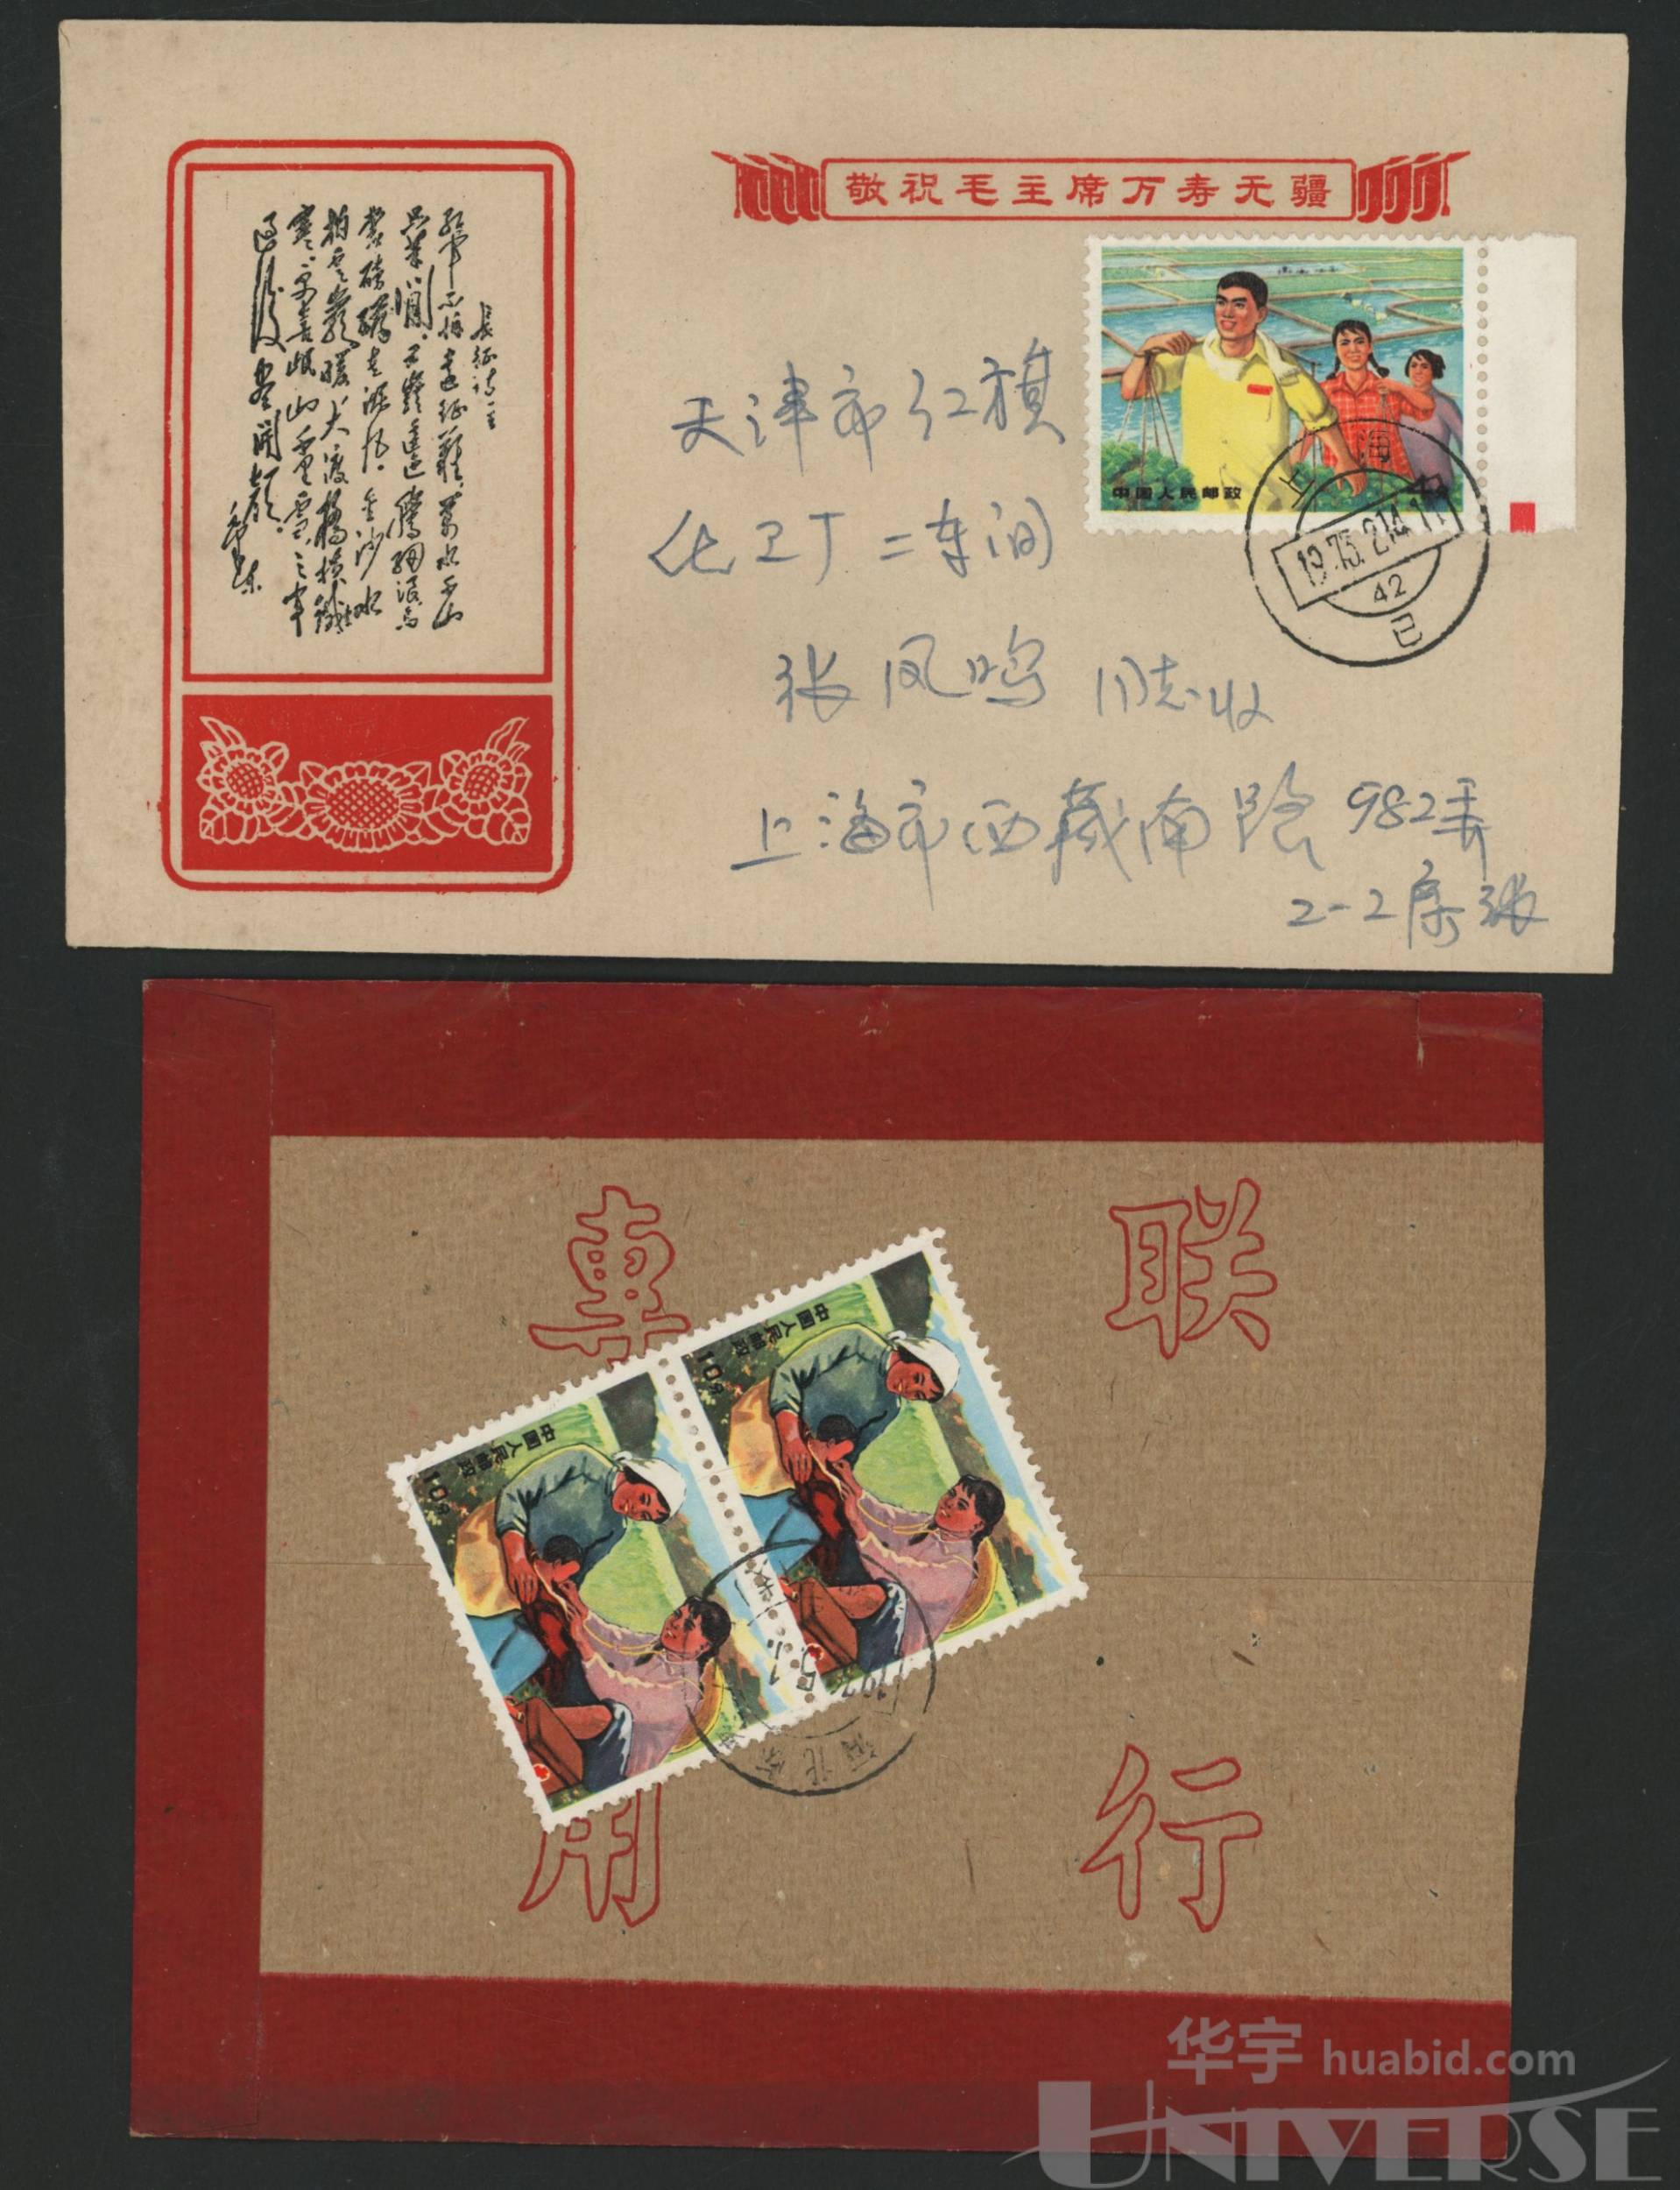 敬祝毛主席万寿无疆
长征诗一首
红军不怕远征难，万水千山
只等闲。五岭逶迤腾细浪，乌
蒙磅礴走泥丸。金沙水
拍云崖暖，大渡桥横铁索
寒。更喜岷山千里雪，三军
过后尽开颜。
毛泽东
中国人民邮政
上海
1975.2.14.11
42
已
天津市红旗
化工厂二车间
张凤鸣 同志收
上海市西藏南路982弄
2-2房张
联行
專用
中国人民邮政
10分
中国人民邮政
10分
河北
华宇 huabid.com
UNIVERSE